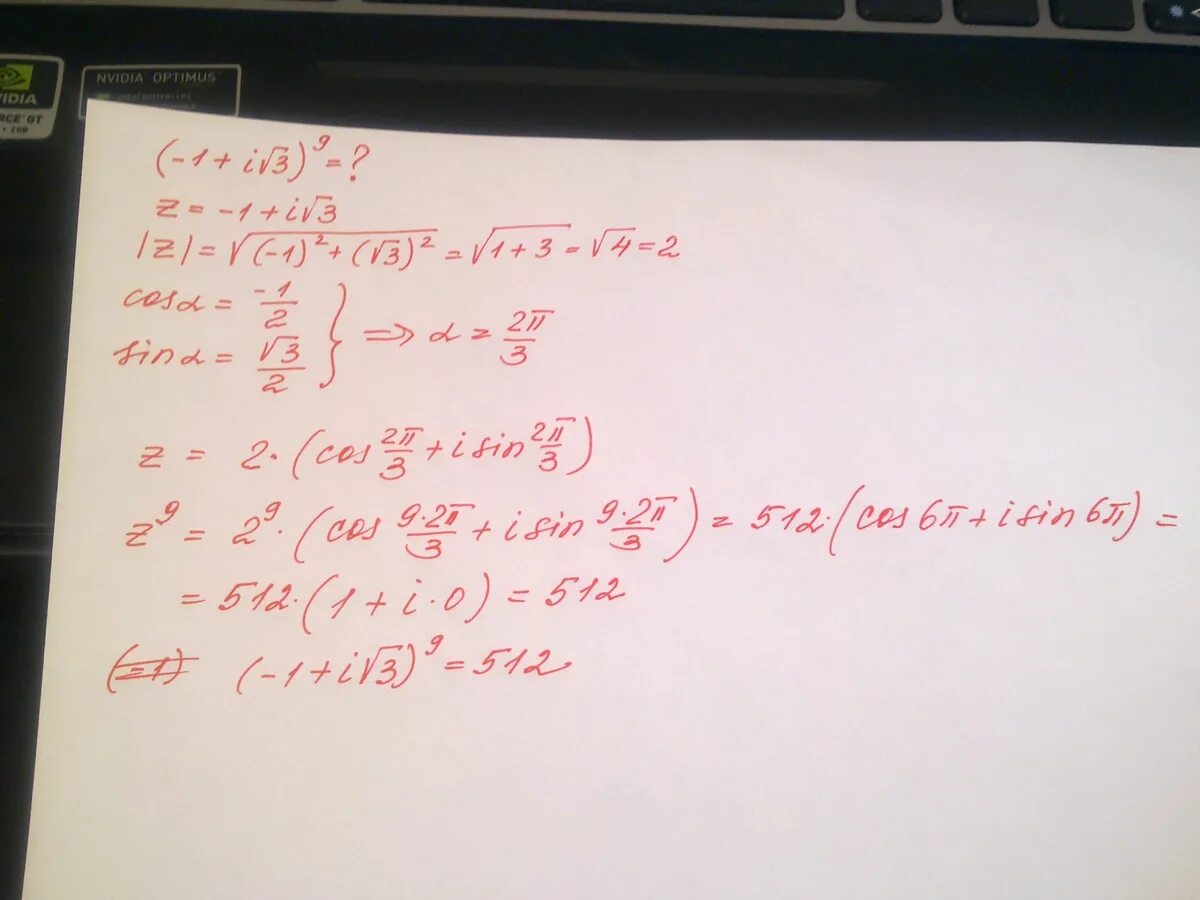 NVIDIA OPTIMUS
VIDIA
RCE GT
2GB
(-1 + i√3)⁹ = ?
z = -1 + i√3
|z| = √((-1)² + (√3)²) = √(1 + 3) = √4 = 2
cos α = -1/2
sin α = √3/2 } ⇒ α = 2π/3
z = 2 · (cos 2π/3 + i sin 2π/3)
z⁹ = 2⁹ · (cos 9·2π/3 + i sin 9·2π/3) = 512 · (cos 6π + i sin 6π) =
= 512 · (1 + i · 0) = 512
(-1) (-1 + i√3)⁹ = 512